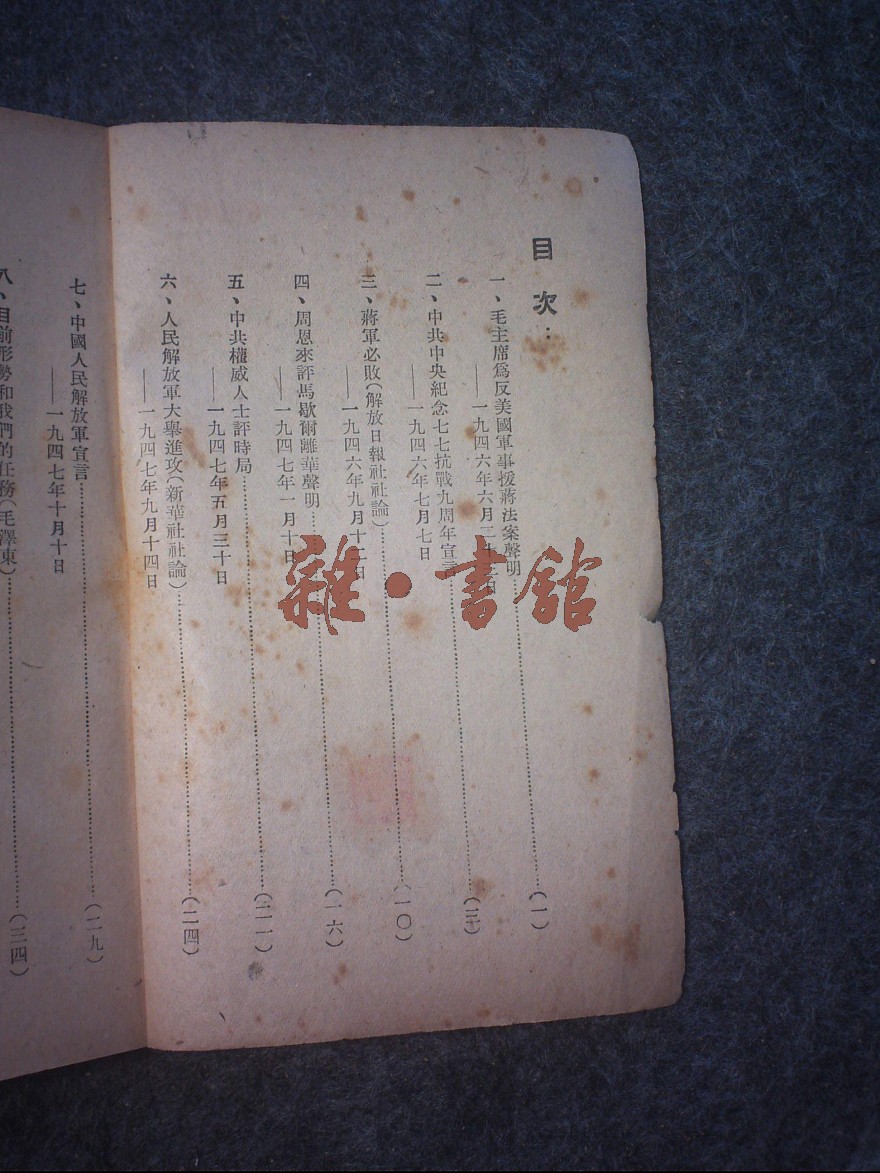 目次：
一、毛主席爲反美國軍事援蔣法案聲明……(一)
——一九四六年六月二
二、中共中央紀念七七抗戰九周年宣言……(三)
——一九四六年七月七日
三、蔣軍必敗(解放日報社社論)……(一〇)
——一九四六年九月十二日
四、周恩來評馬歇爾離華聲明……(一六)
——一九四七年一月十日
五、中共權威人士評時局……(二一)
——一九四七年五月三十日
六、人民解放軍大舉進攻(新華社社論)……(二四)
——一九四七年九月十四日
七、中國人民解放軍宣言……(二九)
——一九四七年十月十日
八、目前形勢和我們的任務(毛澤東)……(三四)
雜·書館